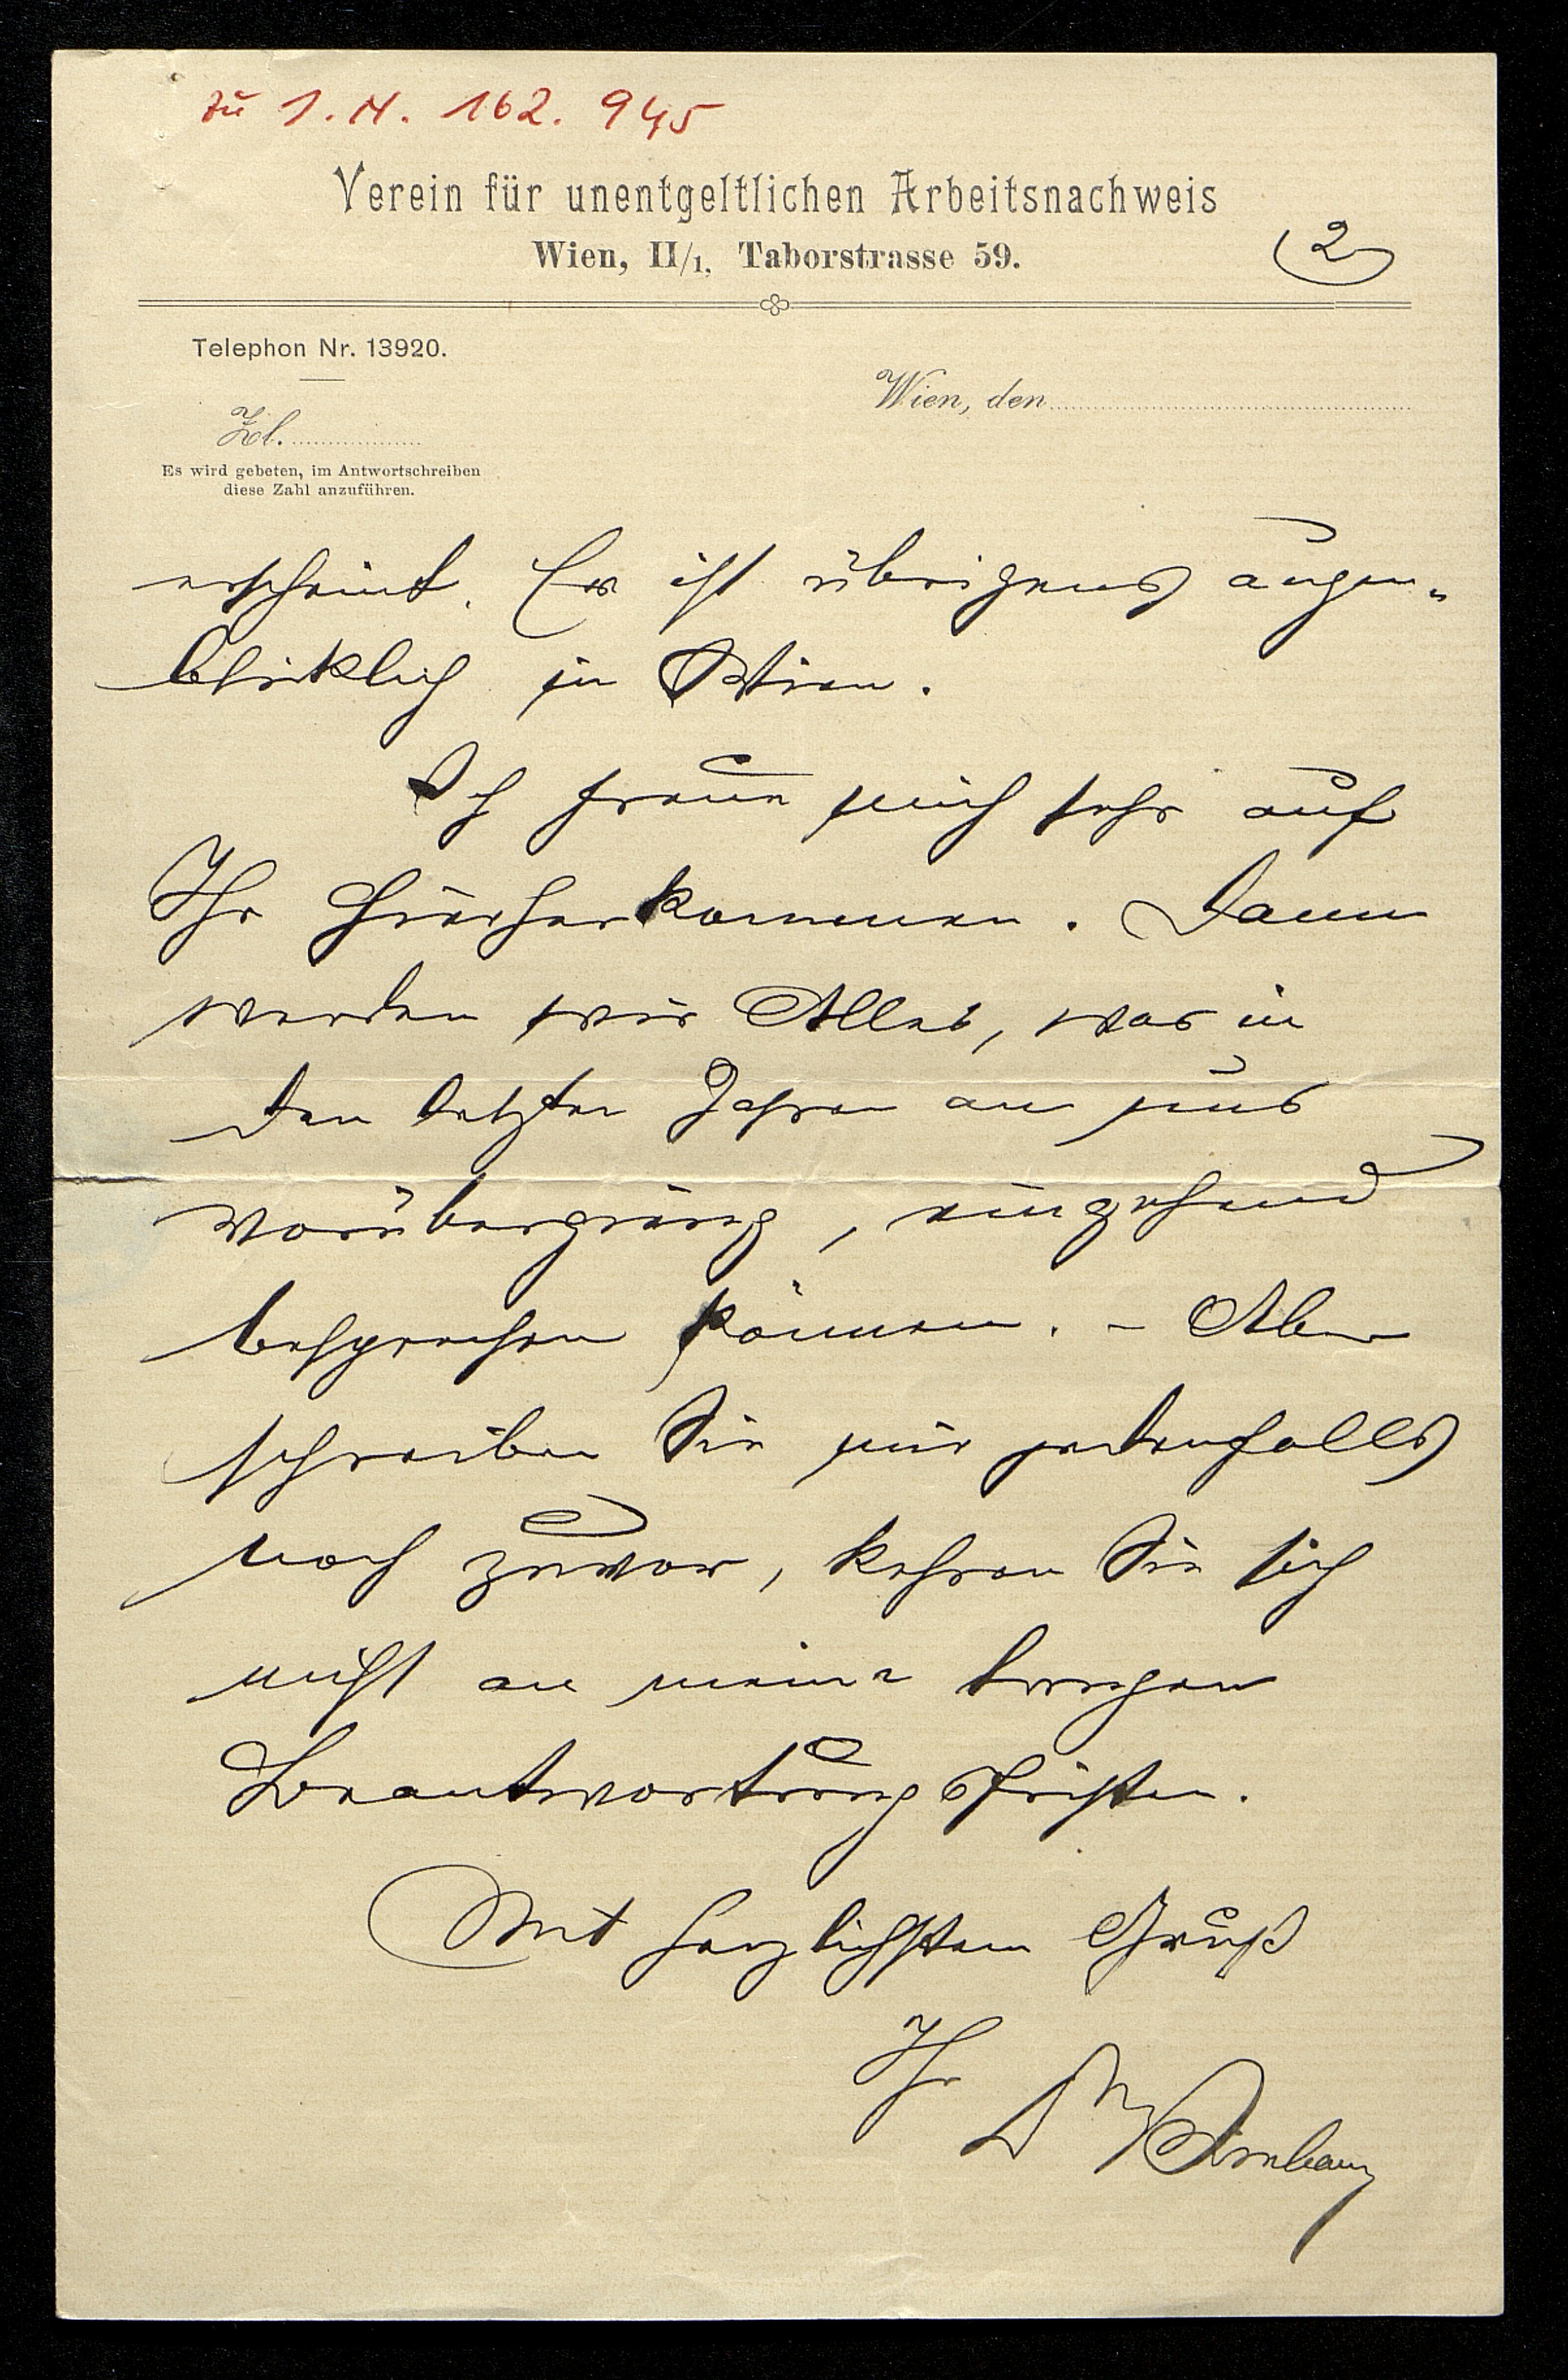 zu I. N. 162.945
Verein für unentgeltlichen Arbeitsnachweis
Wien, II/1, Taborstrasse 59.
2
Telephon Nr. 13920.
Wien, den
Zl.
Es wird gebeten, im Antwortschreiben
diese Zahl anzuführen.
erscheint. Er ist übrigens augen-
blicklich in Wien.
Ich freue mich sehr auf
Ihr Hierherkommen. Dann
werden wir Alles, was in
den letzten Jahren an uns
vorüberging, eingehend
besprechen können. – Aber
schreiben Sie mir jedenfalls
noch zuvor, kehren Sie sich
nicht an meine langen
Beantwortungsfristen.
Mit herzlichstem Gruß
Ihr Dr